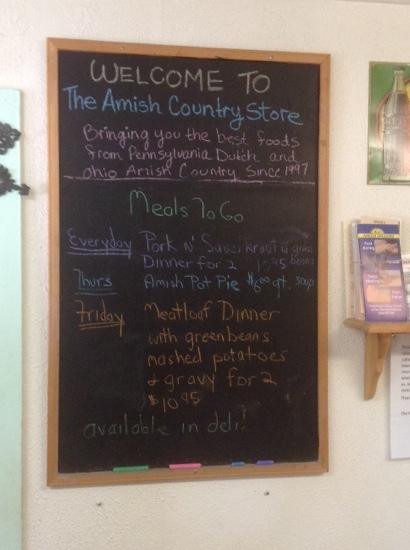 WELCOME TO
The Amish Country Store
Bringing you the best foods
from Pennsylvania Dutch and
Ohio Amish Country Since 1997
Meals To Go
Everyday Pork n' Sauerkraut & green
Dinner for 2 10.95 beans
Thurs Amish Pot Pie $6.00 qt. soup
Friday Meatloaf Dinner
with greenbeans
mashed potatoes
& gravy for 2
$10.95
available in deli!